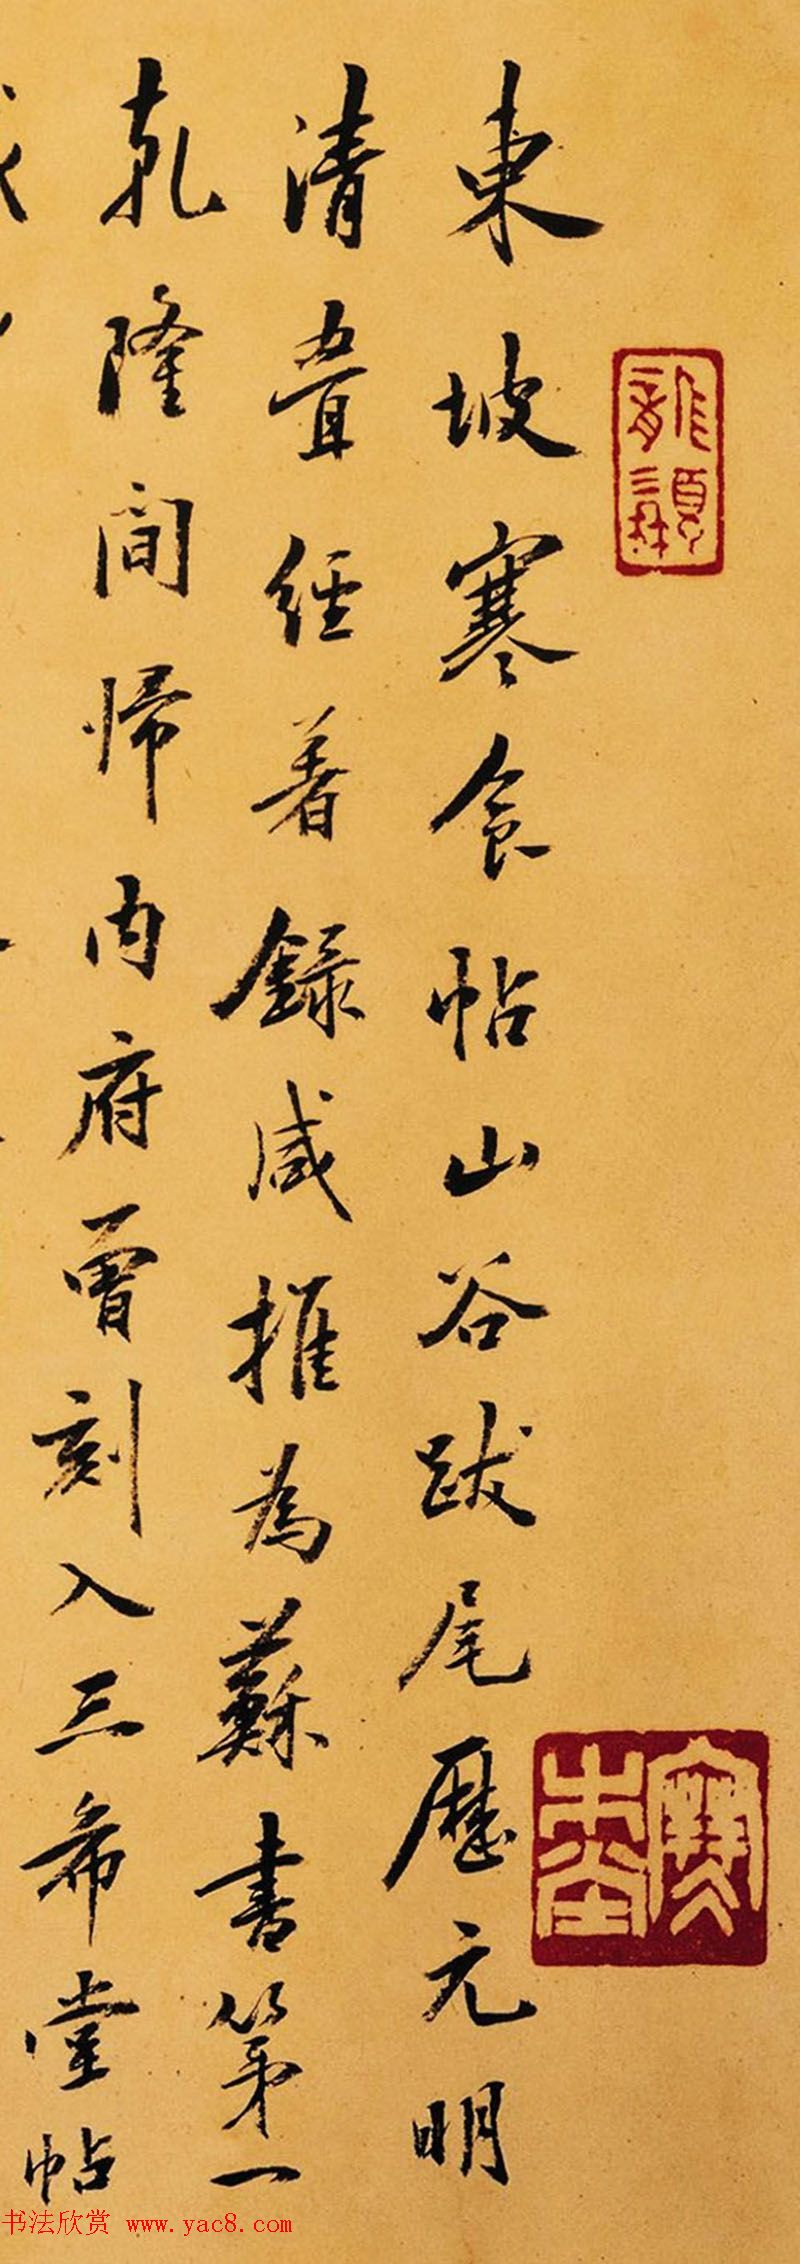 東坡寒食帖山谷跋尾歷元明
清疊經著錄咸推為蘇書第一
乾隆間歸内府曾刻入三希堂帖
书法欣赏 www.yac8.com